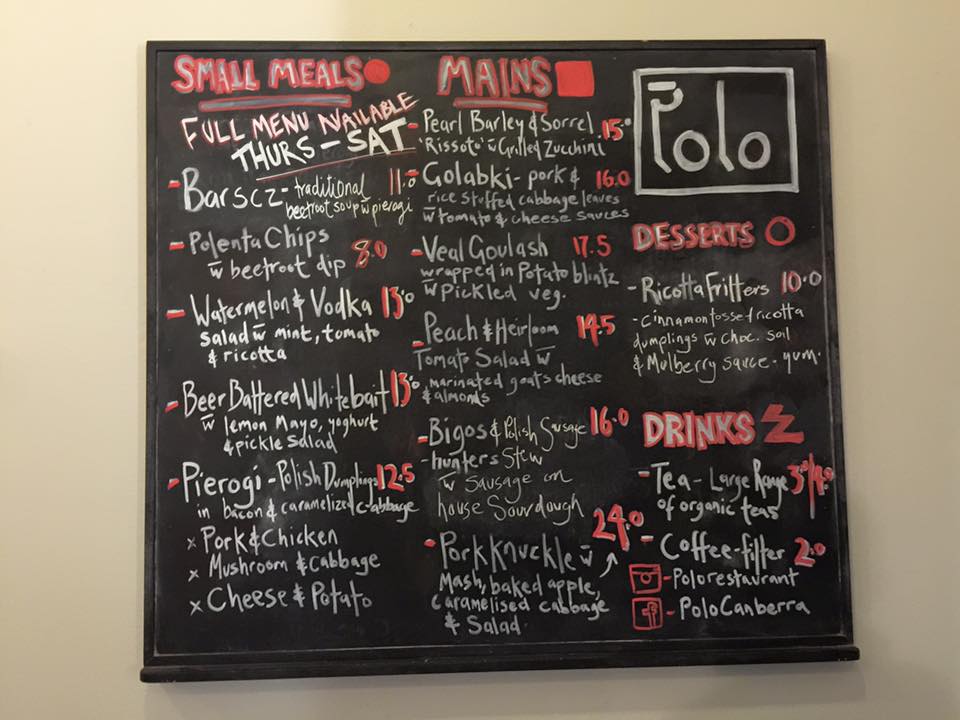 SMALL MEALS
FULL MENU AVAILABLE
THURS - SAT
- Barscz - traditional 11.0
beetroot soup w pierogi
- Polenta Chips
w beetroot dip 8.0
- Watermelon & Vodka 13.0
salad w mint, tomato
& ricotta
- Beer Battered Whitebait 13.0
w lemon Mayo, yoghurt
& pickle salad
- Pierogi - Polish Dumplings 12.5
in bacon & caramelized cabbage
x Pork & Chicken
x Mushroom & Cabbage
x Cheese & Potato
MAINS
- Pearl Barley & Sorrel 15.0
'Rissoto' w Grilled Zucchini
- Golabki - pork & 16.0
rice stuffed cabbage leaves
w tomato & cheese sauces
- Veal Goulash 17.5
wrapped in Potato blintz
w Pickled veg.
- Peach & Heirloom 14.5
Tomato Salad w
marinated goats cheese
& almonds
- Bigos & Polish Sausage 16.0
- hunters Stew
w Sausage on
house Sourdough
- Pork Knuckle w 24.0
Mash, baked apple,
caramelised cabbage
& Salad
Polo
DESSERTS
- Ricotta Fritters 10.0
- cinnamon tossed ricotta
dumplings w choc. soil
& Mulberry sauce - yum.
DRINKS
- Tea - Large Range 3.0/4.0
of organic teas
- Coffee - filter 2.0
- Polorestaurant
f - PoloCanberra